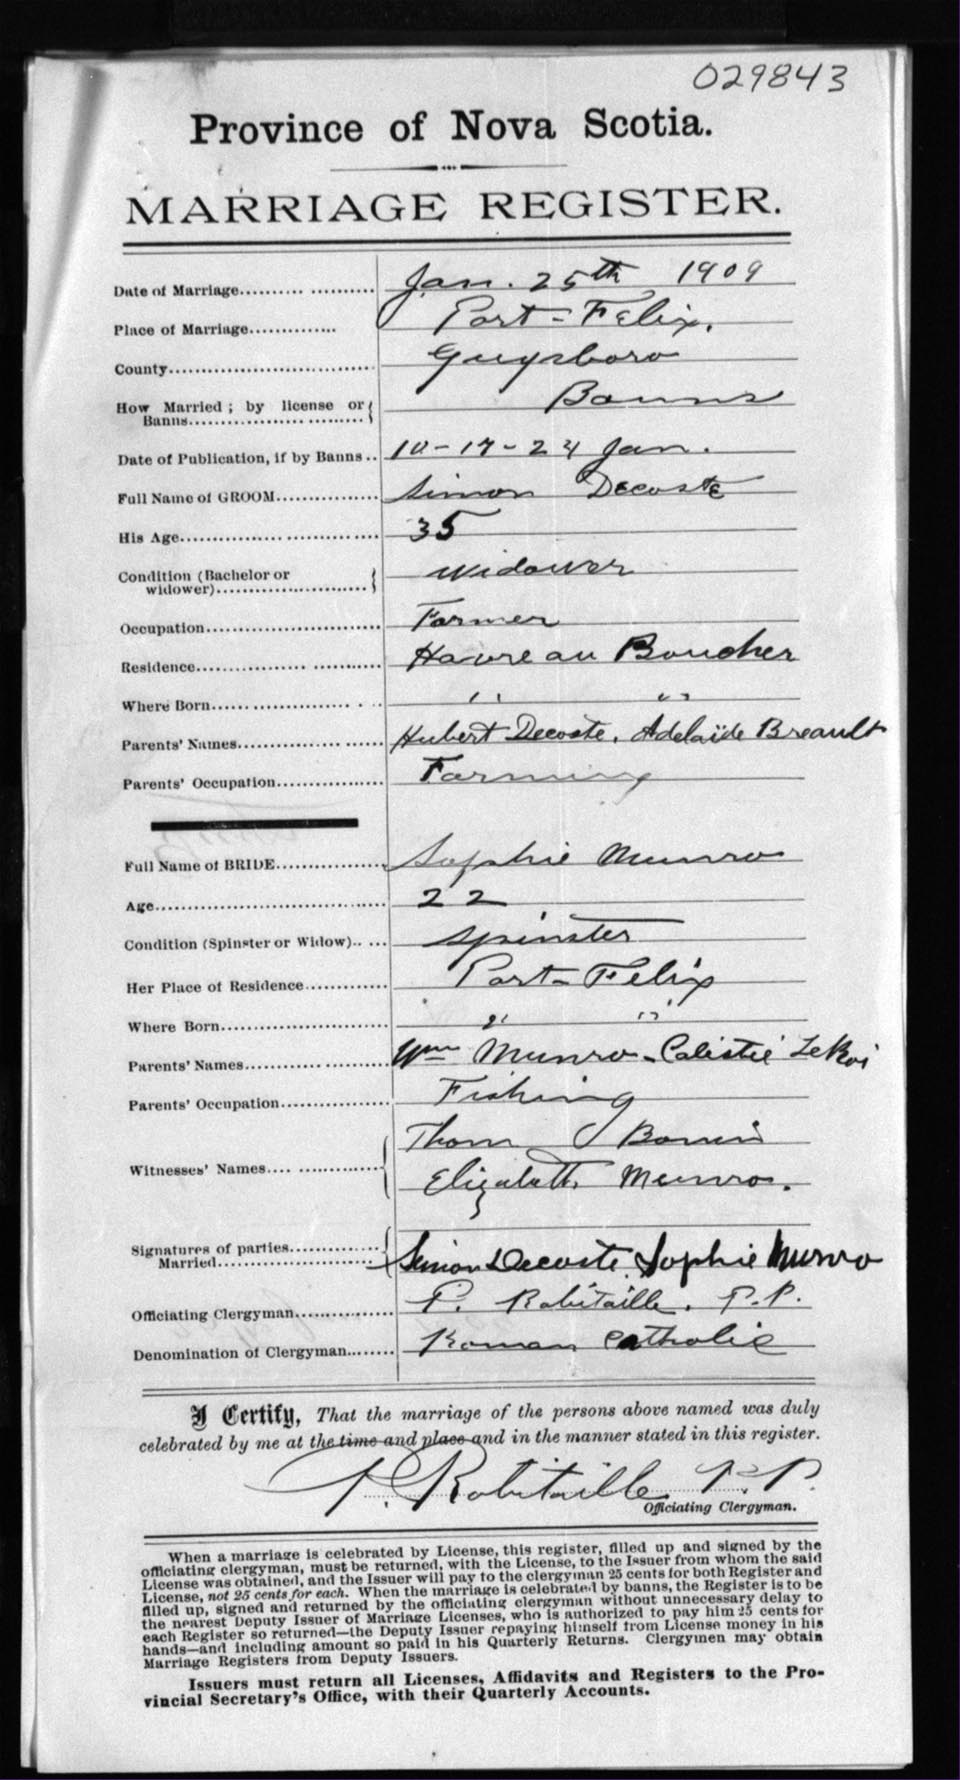 029843
Province of Nova Scotia.
MARRIAGE REGISTER.
Date of Marriage.......... Jan. 25th, 1909
Place of Marriage............. Port-Felix.
County............................... Guysboro
How Married; by license or
Banns.............................. Banns
Date of Publication, if by Banns.. 10-17-24 Jan.
Full Name of GROOM............... Simon Decoste
His Age............................. 35
Condition (Bachelor or
widower)......................... widower
Occupation.......................... Farmer
Residence........................... Havre au Boucher
Where Born......................... " "
Parents' Names..................... Hubert Decoste. Adelaïde Breault
Parents' Occupation................ Farming
Full Name of BRIDE................ Sophie Munro
Age.................................. 22
Condition (Spinster or Widow)..... spinster
Her Place of Residence............ Port-Felix
Where Born......................... " "
Parents' Names..................... Wm Munro-Calistie LeRoi
Parents' Occupation............... Fishing
Thom
Witnesses' Names................
Elizabeth Munro.
Signatures of parties..............
Married....................... Simon Decoste Sophie Munro
Officiating Clergyman............. P. Robitaille. P.P.
Denomination of Clergyman....... Roman Catholic
I Certify, That the marriage of the persons above named was duly
celebrated by me at the time and place and in the manner stated in this register.
P. Robitaille P.P.
Officiating Clergyman.
When a marriage is celebrated by License, this register, filled up and signed by the
officiating clergyman, must be returned, with the License, to the Issuer from whom the said
License was obtained, and the Issuer will pay to the clergyman 25 cents for both Register and
License, not 25 cents for each. When the marriage is celebrated by banns, the Register is to be
filled up, signed and returned by the officiating clergyman without unnecessary delay to
the nearest Deputy Issuer of Marriage Licenses, who is authorized to pay him 25 cents for
each Register so returned—the Deputy Issuer repaying himself from License money in his
hands—and including amount so paid in his Quarterly Returns. Clergymen may obtain
Marriage Registers from Deputy Issuers.
Issuers must return all Licenses, Affidavits and Registers to the Pro-
vincial Secretary's Office, with their Quarterly Accounts.